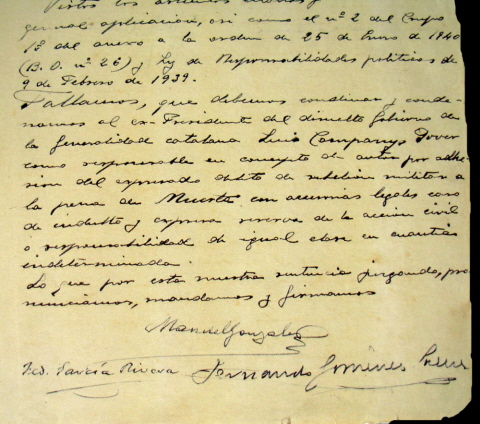 Vistos los artículos citados y
general aplicación, así como el nº 2 del Grupo
1º del anexo a la orden de 25 de Enero de 1940
(B.O. nº 26) y Ley de Responsabilidades politicas de
9 de Febrero de 1939.
Fallamos, que debemos condenar y conde-
namos al ex-Presidente del disuelto Gobierno de
la Generalidad catalana Luis Companys Jover
como responsable en concepto de autor por adhe-
sion del expresado delito de rebelión militar a
la pena de Muerte con accesorias legales caso
de indulto y expresa reserva de la accion civil
o responsabilidad de igual clase en cuantia
indeterminada.
Lo que por esta nuestra sentencia juzgando, pro-
nunciamos, mandamos y firmamos
Manuel Gonzalez
Fed. García Rivera Fernando Giménez